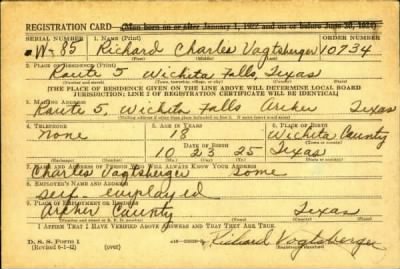 REGISTRATION CARD—(Men born on or after January 1, 1922 and on or before June 30, 1924)
SERIAL NUMBER 1. NAME (Print) ORDER NUMBER
W-85 Richard Charles Vagtsberger 10734
2. PLACE OF RESIDENCE (Print)
Route 5 Wichita Falls, Texas
[THE PLACE OF RESIDENCE GIVEN ON THE LINE ABOVE WILL DETERMINE LOCAL BOARD
JURISDICTION; LINE 2 OF REGISTRATION CERTIFICATE WILL BE IDENTICAL]
3. MAILING ADDRESS
Route 5, Wichita Falls Archer Texas
[Mailing address if other than place indicated on line 2. If same insert word same]
4. TELEPHONE 5. AGE IN YEARS 6. PLACE OF BIRTH
None 18 Wichita County
DATE OF BIRTH
10 23 25 Texas
7. NAME AND ADDRESS OF PERSON WHO WILL ALWAYS KNOW YOUR ADDRESS
Charles Vagtsberger Same
8. EMPLOYER'S NAME AND ADDRESS
self employed
9. PLACE OF EMPLOYMENT OR BUSINESS
Archer County Texas
I AFFIRM THAT I HAVE VERIFIED ABOVE ANSWERS AND THAT THEY ARE TRUE.
D. S. S. Form 1
(Revised 6-1-42) (over) Richard Vogtsberger